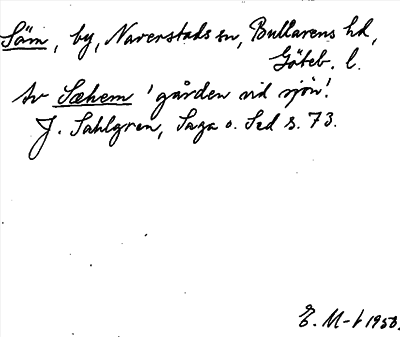 Säm, by, Naverstads sn, Bullarens hd,
Göteb. l.
Av Sæhem 'gården vid sjön'.
J. Sahlgren, Saga o. Sed s. 73.
E. M-t 1958.